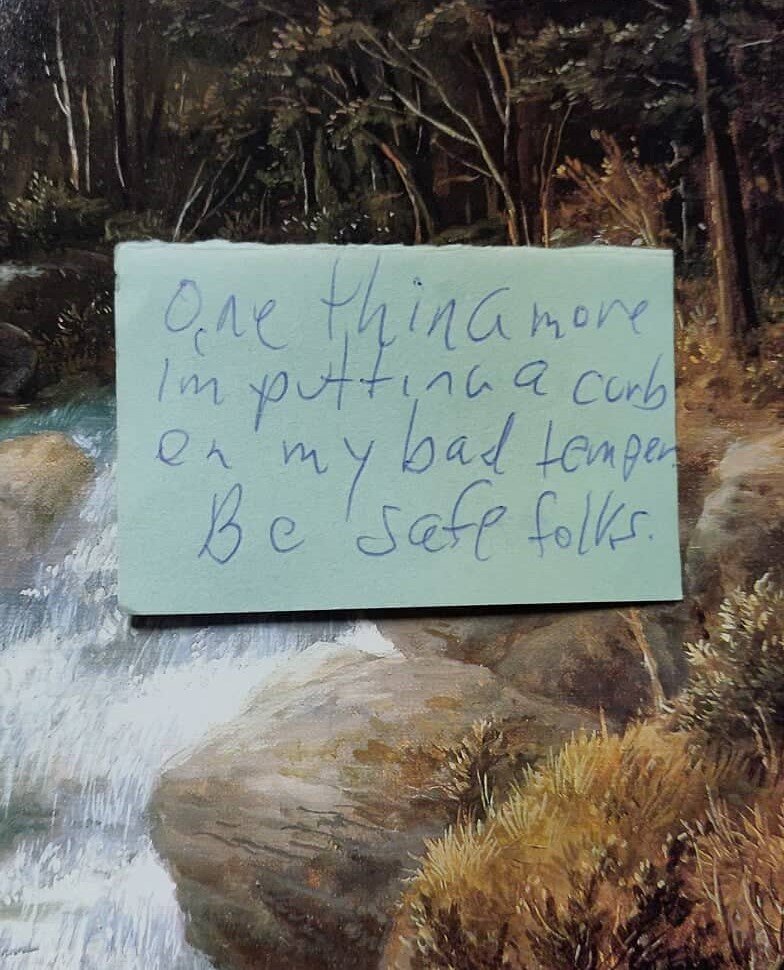 One thing more
Im putting a curb
on my bad temper.
Be safe folks.